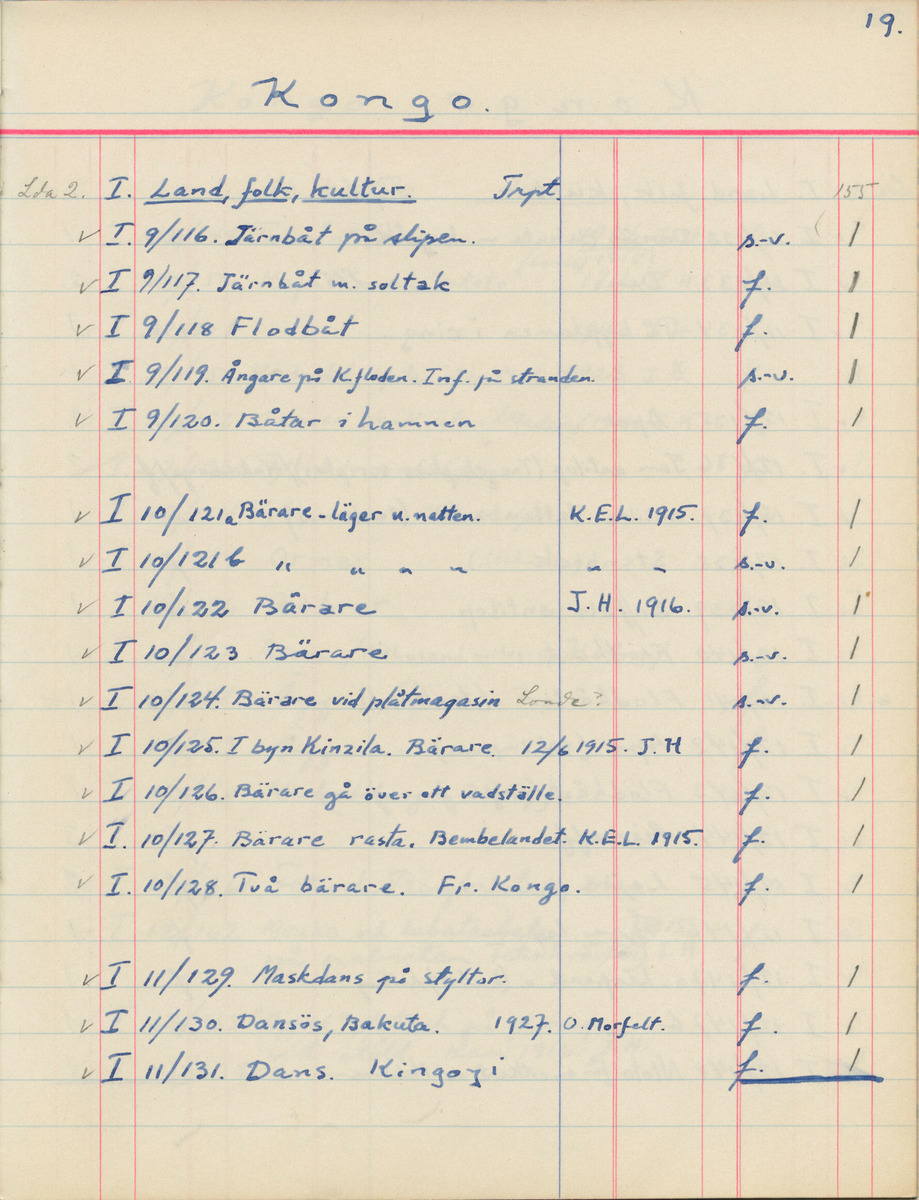 19.
Kongo.
Lda 2. I. Land, folk, kultur. Trpt. 155
✓ I. 9/116. Järnbåt på slipen. s.-v. 1
✓ I 9/117. Järnbåt m. soltak f. 1
✓ I 9/118 Flodbåt f. 1
✓ I 9/119. Ångare på K.floden. Inf. på stranden. s.-v. 1
✓ I 9/120. Båtar i hamnen f. 1
✓ I 10/121a Bärare-läger u. natten. K.E.L. 1915. f. 1
✓ I 10/121b " " " " " " s.-v. 1
✓ I 10/122 Bärare J.H. 1916. s.-v. 1
✓ I 10/123 Bärare s.-v. 1
✓ I 10/124. Bärare vid plåtmagasin Londe? s.-v. 1
✓ I 10/125. I byn Kinzila. Bärare 12/6 1915. J.H f. 1
✓ I 10/126. Bärare gå över ett vadställe. f. 1
✓ I. 10/127. Bärare rasta. Bembelandet. K.E.L. 1915. f. 1
✓ I. 10/128. Två bärare. Fr. Kongo. f. 1
✓ I 11/129. Maskdans på styltor. f. 1
✓ I 11/130. Dansös, Bakuta. 1927. O. Morfelt. f. 1
✓ I 11/131. Dans. Kingoyi f. 1